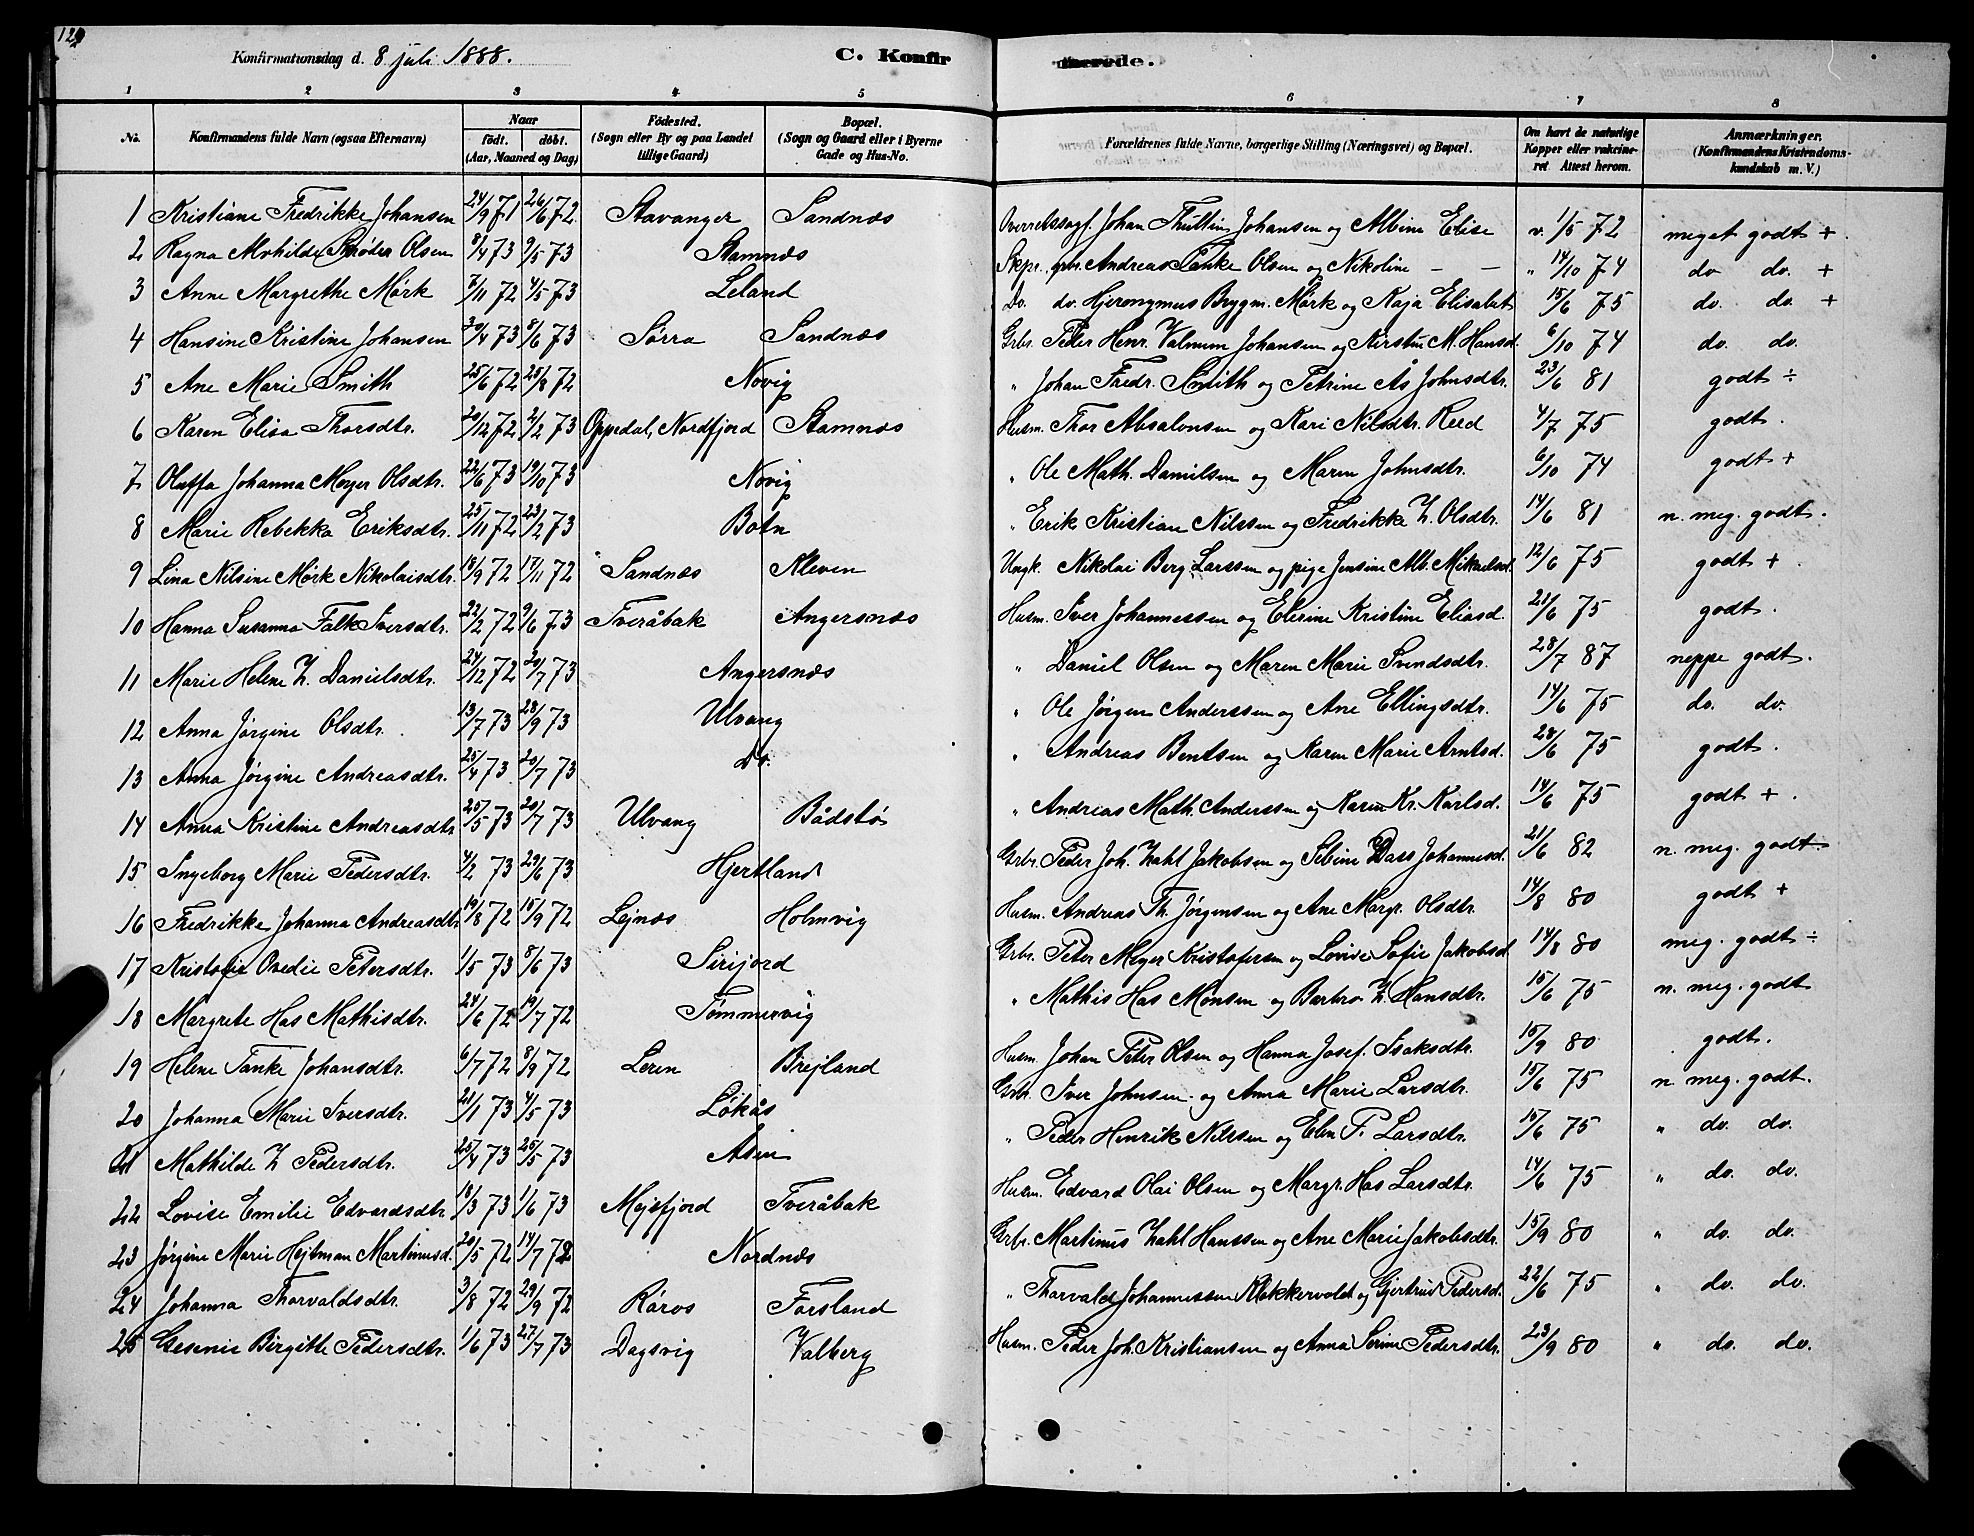 Konfirmationsdag d. 8 juli 1888. C. Konfirmerede.
1 2 3 4 5 6 7 8
No. Konfirmandens fulde Navn (ogsaa Efternavn) Naar födt. döbt. (Aar, Maaned og Dag) Födested. (Sogn eller By og paa Landet tillige Gaard) Bopæl. (Sogn og Gaard eller i Byerne Gade og Hus-No. Forældrenes fulde Navne, borgerlige Stilling (Næringsvei) og Bopæl. Om havt de naturlige Kopper eller vaccineret Attest herom. Anmærkninger. (Konfirmandens Kristendomskundskab m. V.)
1 Kristiane Fredrikke Johansen 24/9 71 26/6 72. Stavanger Sandnæs Overretssagf. Johan Johansen og Albine Elise v. 1/5 72 meget godt +.
2 Ragna Olsen 8/4 73 9/5 73 Stamnæs Andreas Tanke Olsen og Nikoline — — " 14/10 74 do do. +
3 Anne Margrethe Mörk 7/11 72 4/5 73 Leland Do. do. Hjeronymus Brygm. Mörk og Kaja Elisabet 15/6 75 do. do. +
4 Hansine Kristine Johansen 30/4 73 8/6 73 Sörra Sandnæs Grbr. Peder Henr. Valnum Johansen og Kirstin M. Hansd. 6/10 74 do. do.
5 Ane Marie Smith 25/6 72 25/8 72 Novig " Johan Fredr. Smith og Petrine Ås Johnsdtr. 23/6 81 godt ÷
6 Karen Elisa Thorsdtr. 20/12 72 2/2 73 Oppedal, Nordfjord Stamnæs Husm. Thor Absalonsen og Kari Nilsdtr. Reed 4/7 75 godt.
7 Oluffa Johanna Meyer Olsdtr. 22/6 73 19/10 73 Novig " Ole Math. Danielsen og Maren Johnsdtr. 6/10 74 godt +
8 Marie Rebekka Eriksdtr. 25/11 72 23/2 73 Botn " Erik Kristian Nilssen og Fredrikke Z. Olsdtr. 14/6 81 n. meg. godt.
9 Lina Nilsine Mörk Nikolaisdtr. 18/9 72 17/11 72 Sandnæs Kleven Ungk. Nikolai Berg Larssen og pige Jensine Alb. Mikaelsd. 12/6 75 godt +.
10 Hanna Susanna Falk Iversdtr. 22/2 72 9/6 73 Tveråbak Angersnæs Husm. Iver Johannessen og Elerine Kristine Eliasd. 21/6 75 godt.
11 Marie Helene Z. Danielsdtr. 24/12 72 20/7 73 Angersnæs " Daniel Olsen og Maren Marie Svendsdtr. 28/7 87 neppe godt.
12 Anna Jörgine Olsdtr. 13/7 73 28/9 73 Ulvang " Ole Jörgen Anderssen og Ane Ellingsdtr. 14/6 75 do. do.
13 Anna Jörgine Andreasdtr. 25/4 73 20/7 73 Do. " Andreas Bentsen og Karen Marie Arntsd. 28/6 75 godt.
14 Anna Kristine Andreasdtr 25/5 73 20/7 73 Ulvang Bådstö " Andreas Math. Anderssen og Karen Kr. Karlsd. 14/6 75 godt +.
15 Ingeborg Marie Pedersdtr. 4/2 73 29/6 73 Hjertland Grbr. Peder Joh. Zahl Jakobsen og Sibine Dass Johannesd. 21/6 82 n. meg. godt.
16 Fredrikke Johanna Andreasdtr 19/8 72 15/9 72 Lejnæs Holmvig Husm. Andreas Th. Jörgensen og Ane Margr. Olsdtr. 14/8 80 godt +
17 Kristofie Ovedie Petersdtr. 1/5 73 8/6 73 Sirijord Grbr. Peter Meyer Kristofersen og Lovise Sofie Jakobsd 14/8 80 meg. godt ÷
18 Margrete Has Mathisdtr. 24/6 72 19/7 72 Tömmervig " Mathis Has Monsen og Barbro Z. Hansdtr. 15/6 75 n. meg. godt
19 Helene Tanke Johansdtr. 6/7 72 8/9 72 Leren Brejland Husm. Johan Peter Olsen og Hanna Josef. Isaksdtr. 15/9 80 godt.
20 Johanna Marie Iversdtr. 21/1 73 4/5 73 Lökås Grbr. Iver Johnsen og Anna Marie Larsdtr. 15/6 75 n. meg. godt.
21 Mathilde Z Pedersdtr. 25/4 73 25/5 73 Asen " Peder Henrik Nilssen og Elen P. Larsdtr. 15/6 75 " do. do.
22 Lovise Emilie Edvardsdtr 18/3 73 1/6 73 Mejsfjord Tveråbak Husm. Edvard Olai Olsen og Margr. Has Larsdtr. 14/6 75 " do. do.
23 Jörgine Marie Hejtman Martinusd. 20/5 72 14/7 72 Nordnæs Grbr. Martinus Zahl Hanssen og Ane Marie Jakobsdtr. 15/9 80 " do. do.
24 Johanna Thorvaldsdtr. 3/8 72 29/9 72 Röros Forsland " Thorvald Johannessen Klokkervoldt og Gjertrud Pedersd. 22/6 75 " do. do.
25 Gesenie Birgitte Pedersdtr. 1/6 73 27/7 73 Dagsvig Valberg Husm. Peder Joh. Kristiansen og Anna Serine Pedersdtr. 23/9 80 " do. do.